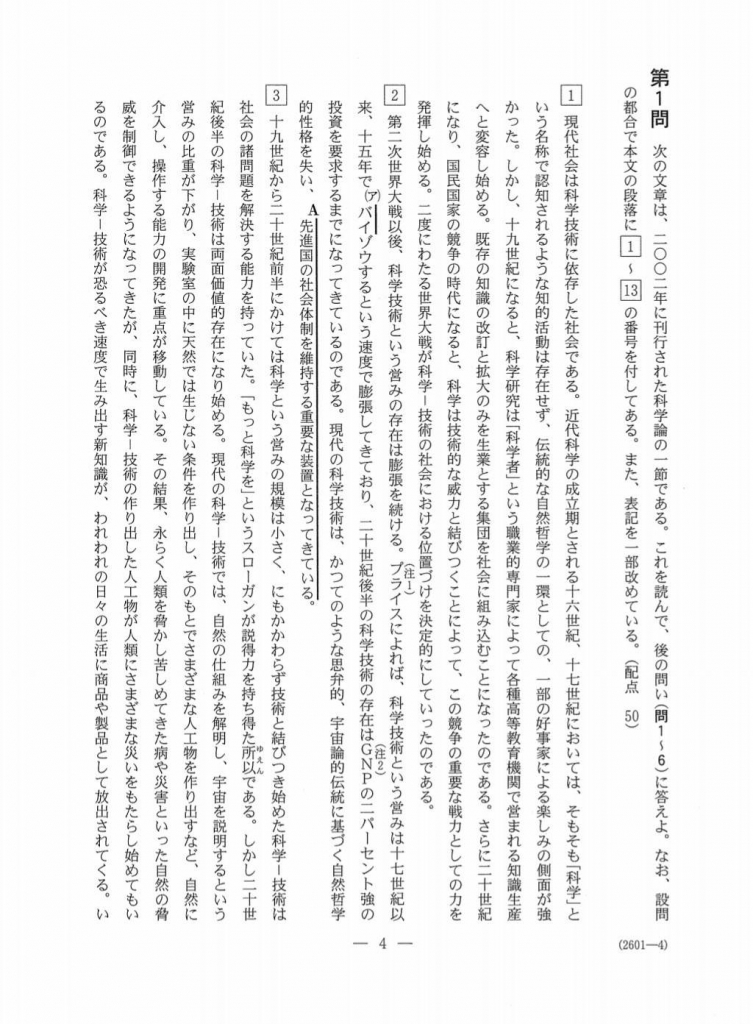 第1問 次の文章は、二〇〇二年に刊行された科学論の一節である。これを読んで、後の問い(問1~6)に答えよ。なお、設問
の都合で本文の段落に 1 ~ 13 の番号を付してある。また、表記を一部改めている。(配点 50)
1 現代社会は科学技術に依存した社会である。近代科学の成立期とされる十六世紀、十七世紀においては、そもそも「科学」と
いう名称で認知されるような知的活動は存在せず、伝統的な自然哲学の一環としての、一部の好事家による楽しみの側面が強
かった。しかし、十九世紀になると、科学研究は「科学者」という職業的専門家によって各種高等教育機関で営まれる知識生産
へと変容し始める。既存の知識の改訂と拡大のみを生業とする集団を社会に組み込むことになったのである。さらに二十世紀
になり、国民国家の競争の時代になると、科学は技術的な威力と結びつくことによって、この競争の重要な戦力としての力を
発揮し始める。二度にわたる世界大戦が科学-技術の社会における位置づけを決定的にしていったのである。
2 第二次世界大戦以後、科学技術という営みの存在は膨張を続ける。プライスによれば、科学技術という営みは十七世紀以
(注1)
来、十五年で(ア)バイゾウするという速度で膨張してきており、二十世紀後半の科学技術の存在はGNPの二パーセント強の
(注2)
投資を要求するまでになってきているのである。現代の科学技術は、かつてのような思弁的、宇宙論的伝統に基づく自然哲学
的性格を失い、A先進国の社会体制を維持する重要な装置となってきている。
3 十九世紀から二十世紀前半にかけては科学という営みの規模は小さく、にもかかわらず技術と結びつき始めた科学-技術は
社会の諸問題を解決する能力を持っていた。「もっと科学を」というスローガンが説得力を持ち得た所以である。しかし二十世
ゆえん
紀後半の科学-技術は両面価値的存在になり始める。現代の科学-技術では、自然の仕組みを解明し、宇宙を説明するという
営みの比重が下がり、実験室の中に天然では生じない条件を作り出し、そのもとでさまざまな人工物を作り出すなど、自然に
介入し、操作する能力の開発に重点が移動している。その結果、永らく人類を脅かし苦しめてきた病や災害といった自然の脅
威を制御できるようになってきたが、同時に、科学-技術の作り出した人工物が人類にさまざまな災いをもたらし始めてもい
るのである。科学-技術が恐るべき速度で生み出す新知識が、われわれの日々の生活に商品や製品として放出されてくる。い
— 4 —
(2601—4)